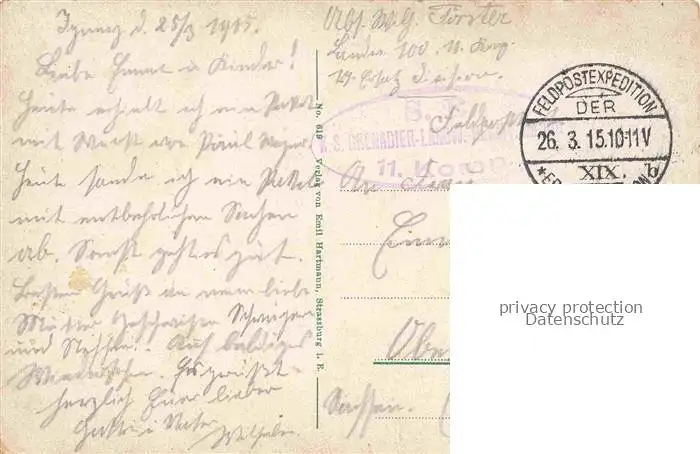 d. 25/3 1915.
Liebe Emma u Kinder!
Heute erhielt ich ein Paket
mit Wurst von Paul
Heute sandte ich ein Paket
mit entbehrlichen Sachen
ab. Sonst geht es gut.
Besten Gruß an meine liebe
Mutter Geschwister Schwieger
und Neffen. Auf baldiges
Wiedersehen. Es grüßt
herzlich Euer lieber
Gatte u Vater
Wilhelm
No. 619 Verlag von Emil Hartmann, Strassburg i. E.
Abs. W. G. Förster
Landw. 100, 11. Komp.
19. Ersatz Division.
Feldpost
K. S. GRENADIER-LANDW.
11. Komp.
FELDPOSTEXPEDITION
DER
26. 3. 15.10-11V
XIX. b
An Frau
Sachsen.
privacy protection
Datenschutz